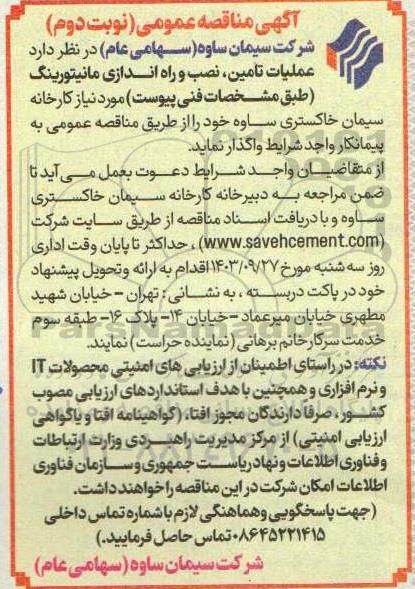 آگهی مناقصه عمومی (نوبت دوم)
شرکت سیمان ساوه (سهامی عام) در نظر دارد
عملیات تامین، نصب و راه اندازی مانیتورینگ
(طبق مشخصات فنی پیوست) مورد نیاز کارخانه
سیمان خاکستری ساوه خود را از طریق مناقصه عمومی به
پیمانکار واجد شرایط واگذار نماید.
از متقاضیان واجد شرایط دعوت بعمل می آید تا
ضمن مراجعه به دبیرخانه کارخانه سیمان خاکستری
ساوه و با دریافت اسناد مناقصه از طریق سایت شرکت
(www.savehcement.com)، حداکثر تا پایان وقت اداری
روز سه شنبه مورخ ۱۴۰۳/۰۹/۲۷ اقدام به ارائه وتحویل پیشنهاد
خود در پاکت دربسته، به نشانی: تهران - خیابان شهید
مطهری خیابان میرعماد - خیابان ۱۴- پلاک ۱۶- طبقه سوم
خدمت سرکار خانم برهانی (نماینده حراست) نمایند.
نکته: در راستای اطمینان از ارزیابی های امنیتی محصولات IT
و نرم افزاری و همچنین با هدف استانداردهای ارزیابی مصوب
کشور، صرفا دارندگان مجوز افتا، (گواهینامه افتا و یا گواهی
ارزیابی امنیتی) از مرکز مدیریت راهبردی وزارت ارتباطات
و فناوری اطلاعات ونهاد ریاست جمهوری و سازمان فناوری
اطلاعات امکان شرکت در این مناقصه را خواهند داشت.
(جهت پاسخگویی و هماهنگی لازم با شماره تماس داخلی
۰۸۶۴۵۲۲۱۴۱۵ تماس حاصل فرمایید.)
شرکت سیمان ساوه (سهامی عام)
ParsNamadData